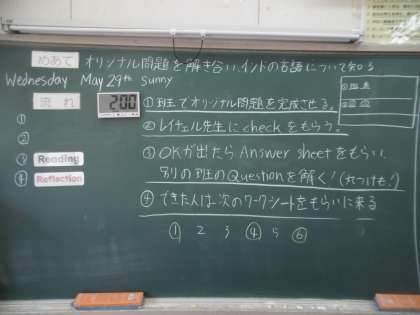 めあて オリジナル問題を解き合い、インドの言語について知る
Wednesday May 29th sunny
流れ
2:00
①
②
③ Reading
④ Reflection
①班でオリジナル問題を完成させる。
②レイチェル先生にcheckをもらう。
③OKが出たらAnswer sheetをもらい、
別の班のQuestionを解く!(丸つけも!)
④できた人は次のワークシートをもらいに来る
① 2 3 ④ 5 ⑥